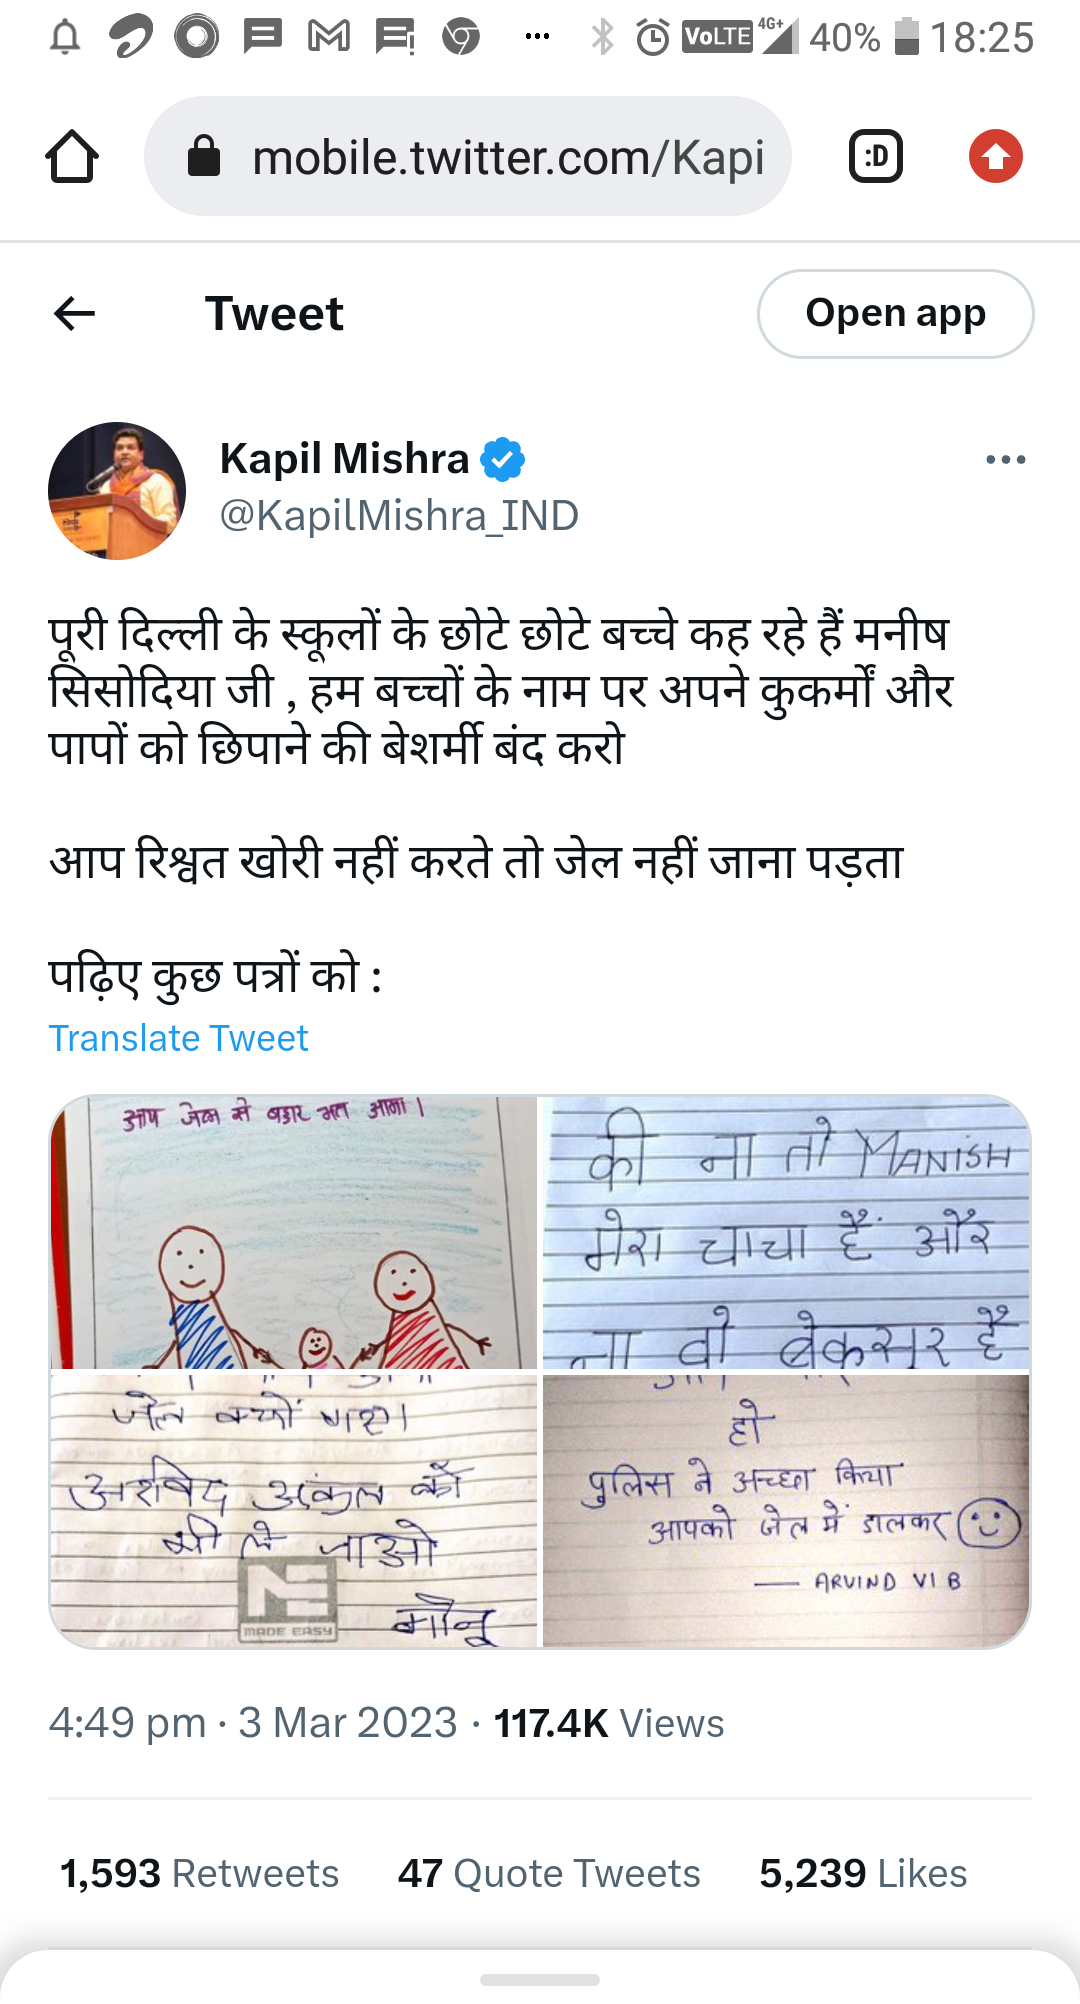 VoLTE 4G+ 40% 18:25
mobile.twitter.com/Kapi
:D
Tweet
Open app
Kapil Mishra
@KapilMishra_IND
पूरी दिल्ली के स्कूलों के छोटे छोटे बच्चे कह रहे हैं मनीष
सिसोदिया जी , हम बच्चों के नाम पर अपने कुकर्मों और
पापों को छिपाने की बेशर्मी बंद करो
आप रिश्वत खोरी नहीं करते तो जेल नहीं जाना पड़ता
पढ़िए कुछ पत्रों को :
Translate Tweet
आप जेल से बहार मत आना।
की ना तो MANISH
मेरा चाचा हैं और
ना वो बेकसूर है
जेल क्यों गए।
अरविंद अंकल को
भी ले जाओ
MADE EASY
मोनू
हो
पुलिस ने अच्छा किया
आपको जेल में डालकर
— ARVIND VI B
4:49 pm · 3 Mar 2023 · 117.4K Views
1,593 Retweets 47 Quote Tweets 5,239 Likes